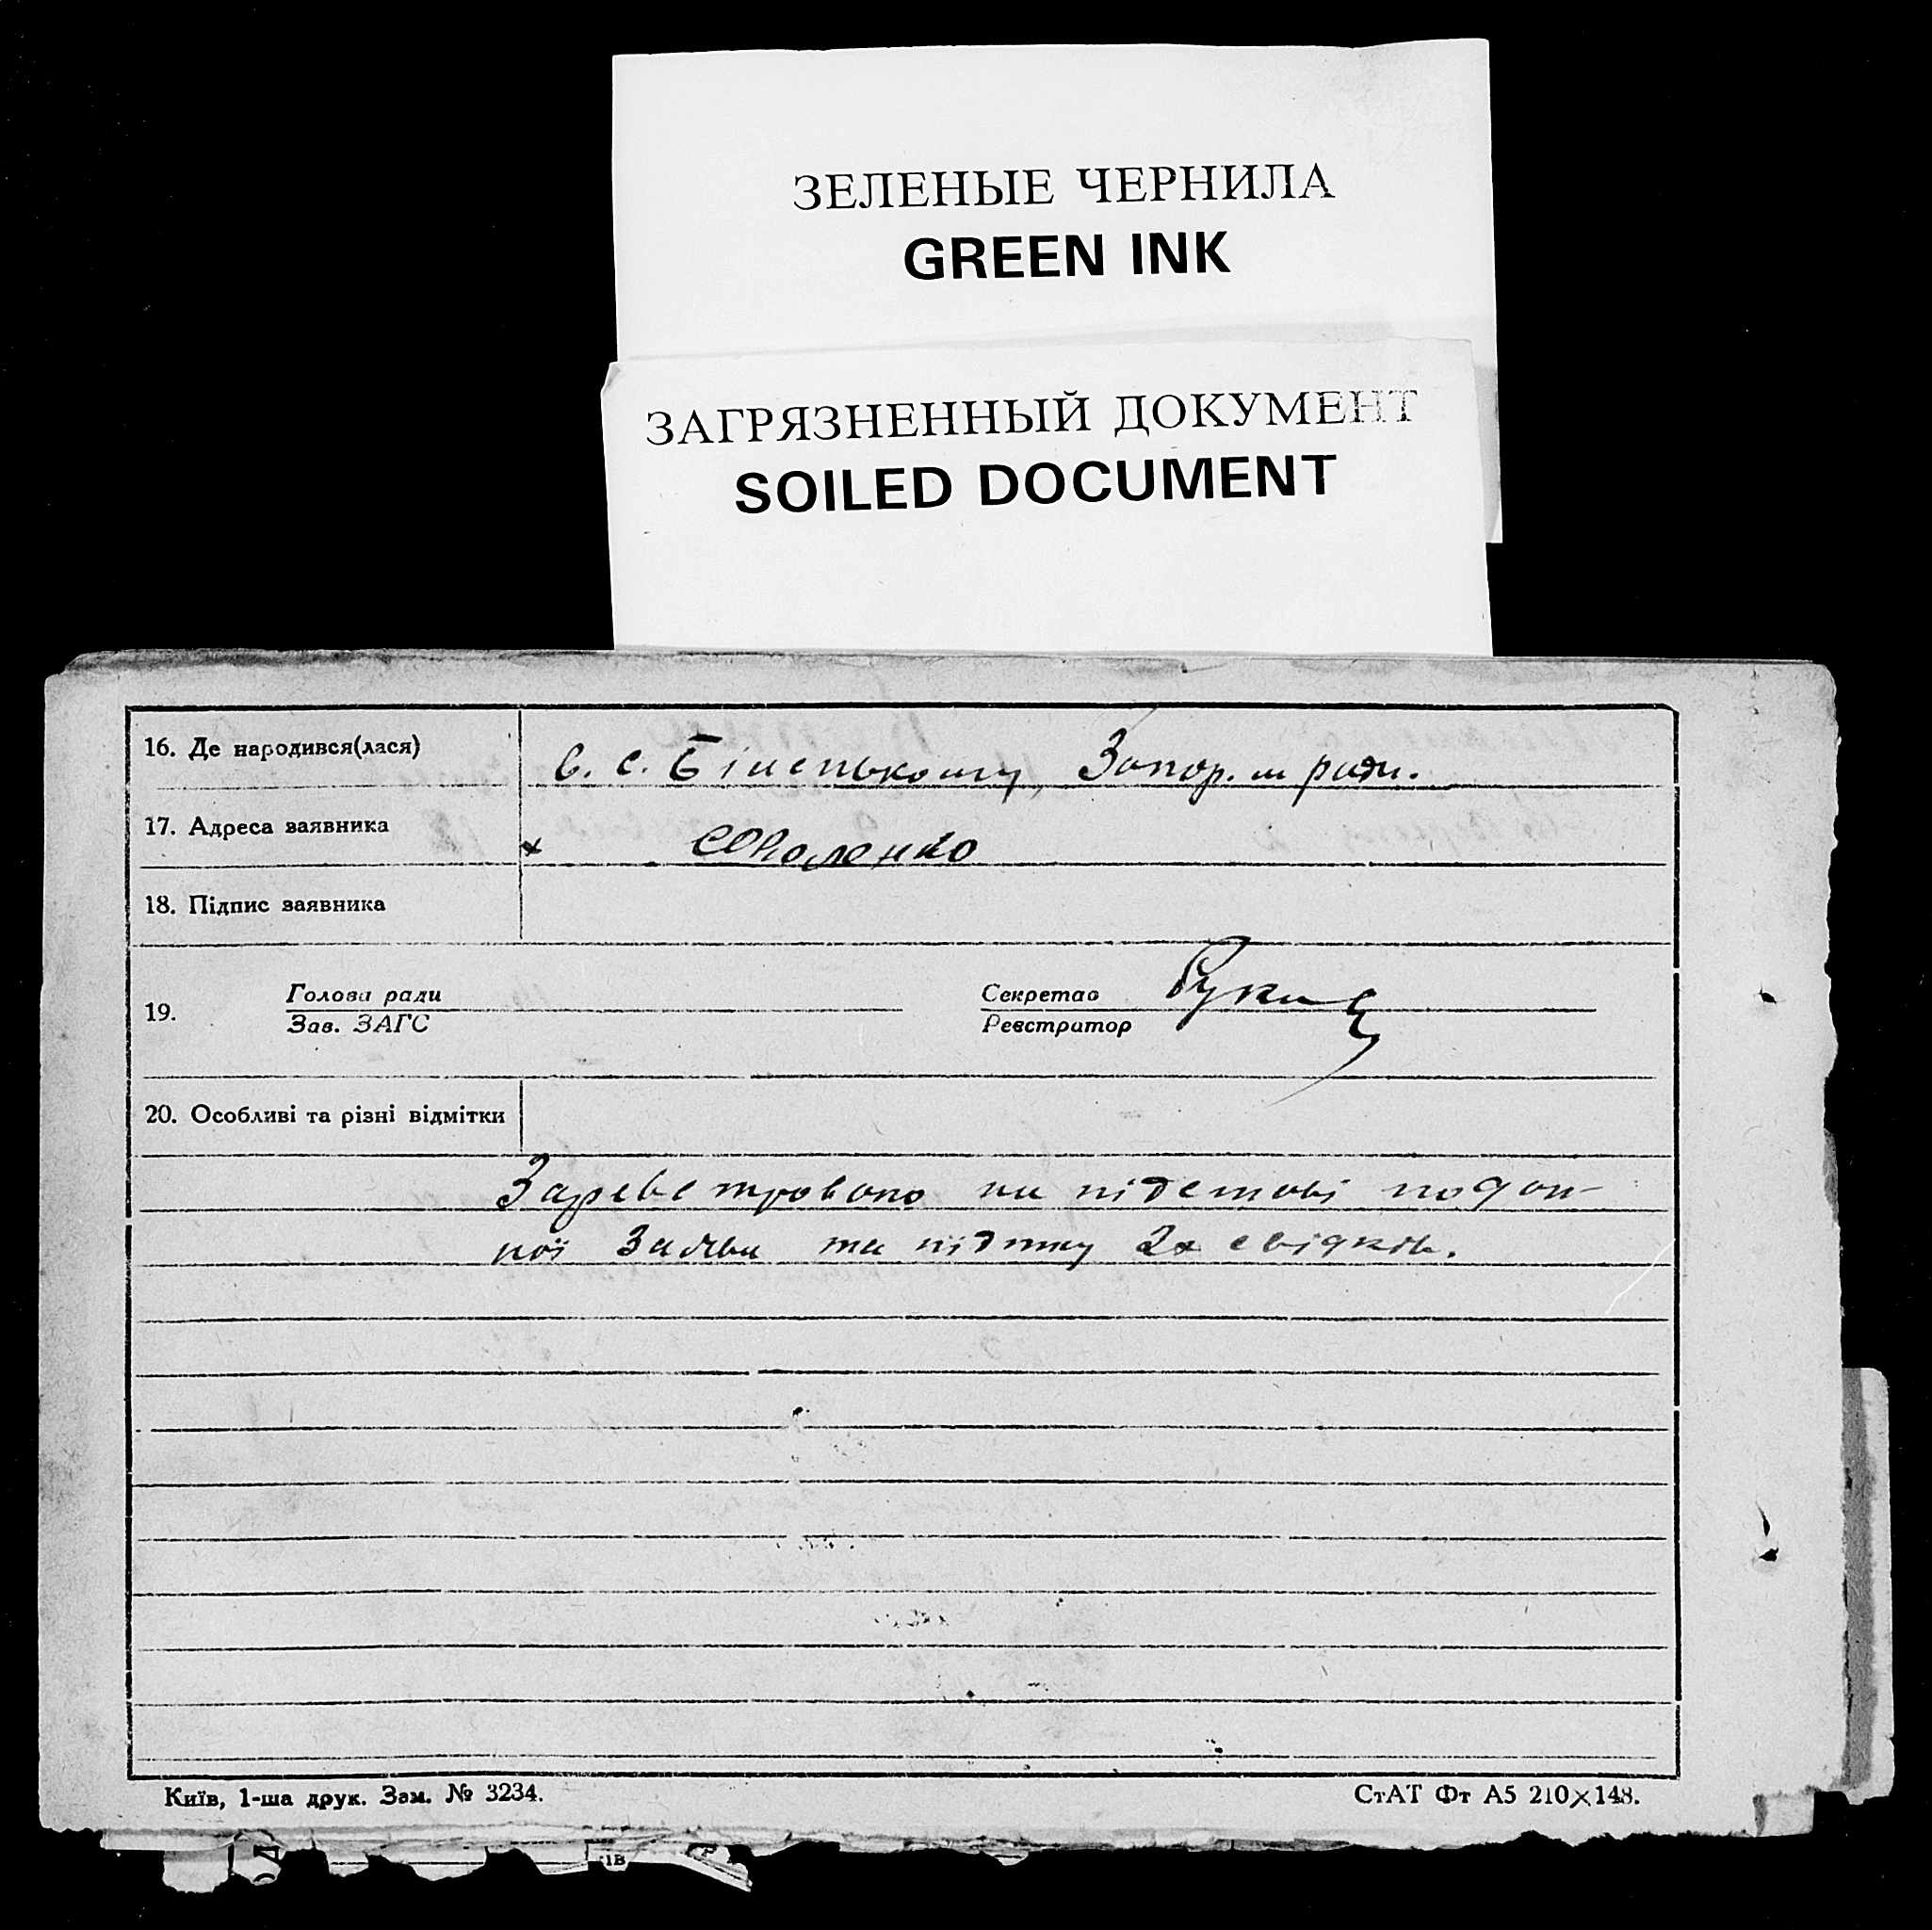 ЗЕЛЕНЫЕ ЧЕРНИЛА
GREEN INK
ЗАГРЯЗНЕННЫЙ ДОКУМЕНТ
SOILED DOCUMENT
16. Де народився(лася) в. с. Біленькому, Запор. м ради.
17. Адреса заявника
18. Підпис заявника
19. Голова ради Секретар
Зав. ЗАГС Реєстратор
20. Особливі та різні відмітки
Зареєстровано на підставі подан-
ної заяви та підпису 2х свідків.
Київ, 1-ша друк. Зам. № 3234. СтАТ Фт А5 210×148.